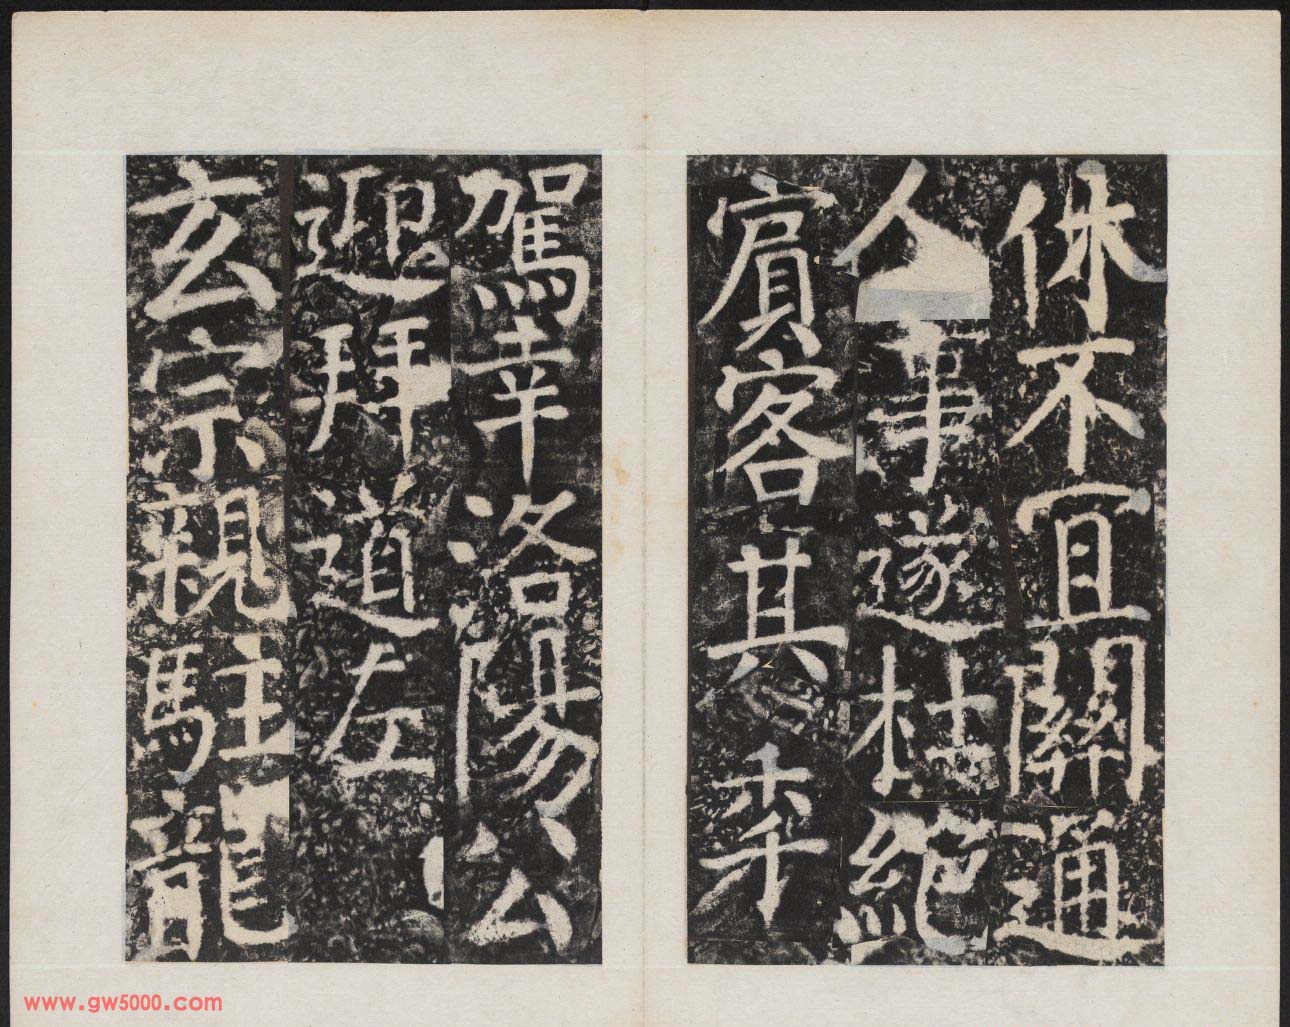 休不宜關通
人事遂杜絕
賔客其秊
駕幸洛陽公
迎拜道左
玄宗親駐龍
www.gw5000.com